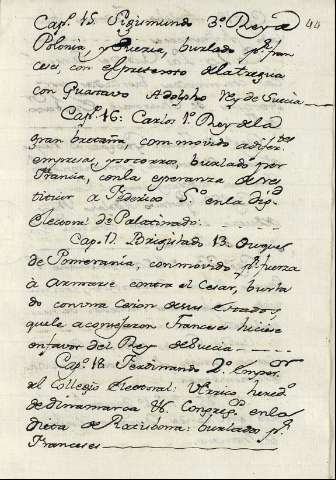 44
Cap.º 15. Sigismundo 3.º Rey de
Polonia, y Suezia, burlado p.r fran
ceses, con el pretexto de la tregua
con Gustavo Adolpho Rey de Suecia
Cap.º 16: Carlos 1.º Rey de la
gran bretaña, commovido a difer.tes
empresas, y socorros, burlado por
Francia, con la esperanza de res
tituir a Federico 5.º en la dig.d
Electoral de Palatinado.
Cap.º 17. Bogislado 13. Duque
de Pomerania, conmovido p.r fuerza
à armarse contra el Cesar, burla
do con una Cesion de sus Estados,
que le aconsejaron Franceses hiciese
en favor del Rey de Suecia
Cap.º 18. Ferdinando 2.º Emper.or
el Collegio Electoral: Vlrico hered.º
de Dinamarca Congres. en la
Dieta de Ratisbona: burlados p.r
Franceses